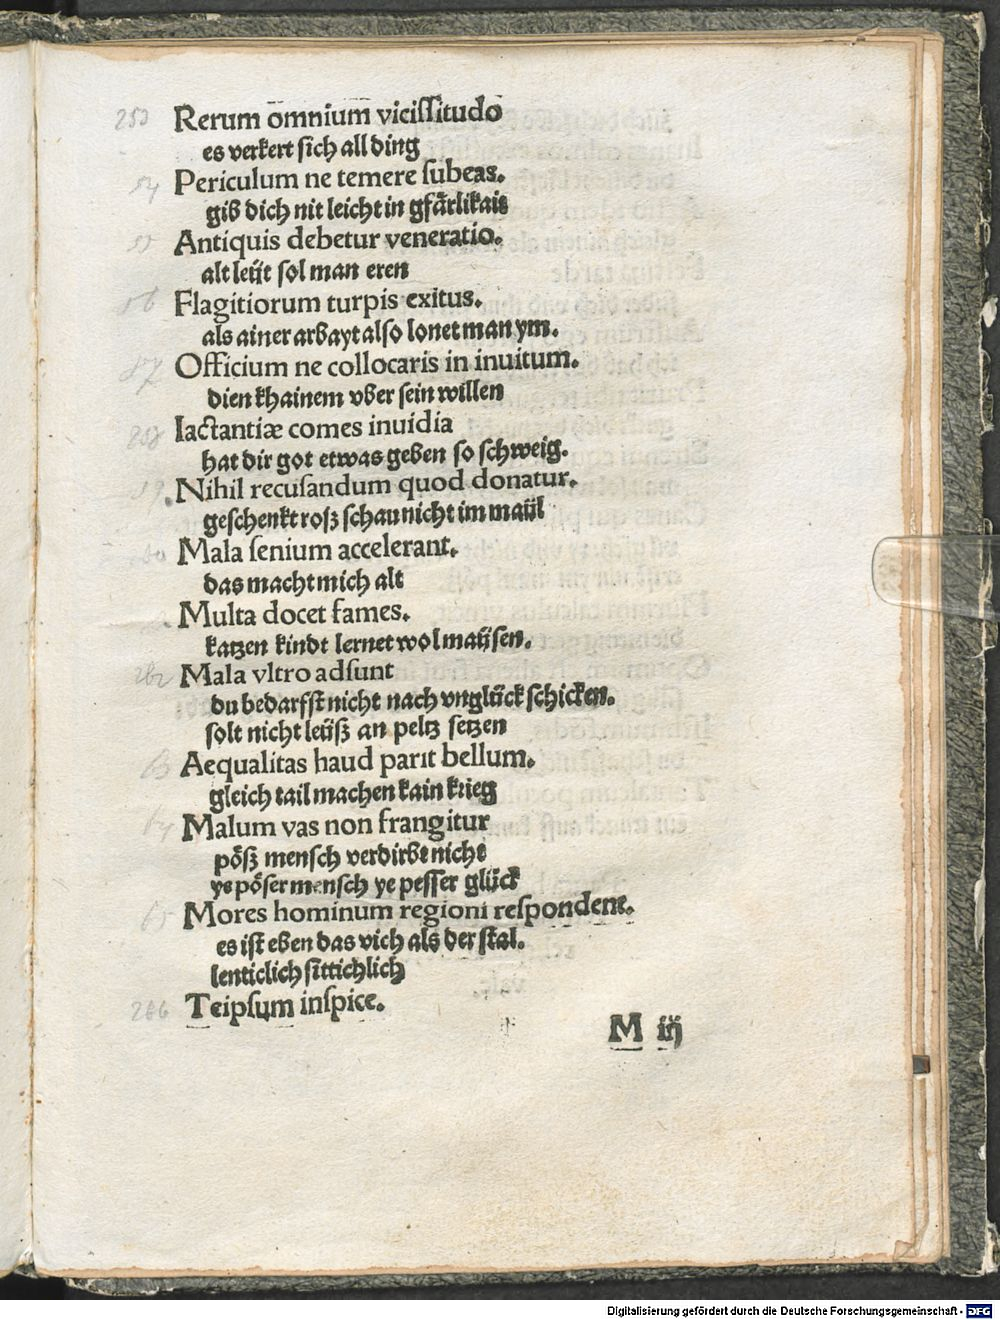 253 Rerum omnium viciſſitudo
es verkert ſich all ding
54 Periculum ne temere ſubeas.
gib dich nit leicht in gfärlikait
55 Antiquis debetur veneratio.
alt leüt ſol man eren
56 Flagitiorum turpis exitus.
als ainer arbayt alſo lonet man ym.
57 Officium ne collocaris in inuitum.
dien khainem vber ſein willen
258 Iactantiæ comes inuidia
hat dir got etwas geben ſo ſchweig.
59 Nihil recuſandum quod donatur.
geſchenkt roſz ſchau nicht im maül
260 Mala ſenium accelerant.
das macht mich alt
Multa docet fames.
katzen kindt lernet wol mauſen.
262 Mala vltro adſunt
du bedarfſt nicht nach vnglück ſchicken.
ſolt nicht leüſz an peltz ſetzen
63 Aequalitas haud parit bellum.
gleich tail machen kain krieg
64 Malum vas non frangitur
pöſz menſch verdirbt nicht
ye pöſer menſch ye peſſer glück
65 Mores hominum regioni reſpondent.
es iſt eben das vich als der ſtal.
lenticlich ſittichlich
266 Teipſum inſpice.
M iij
Digitalisierung gefördert durch die Deutsche Forschungsgemeinschaft - DFG